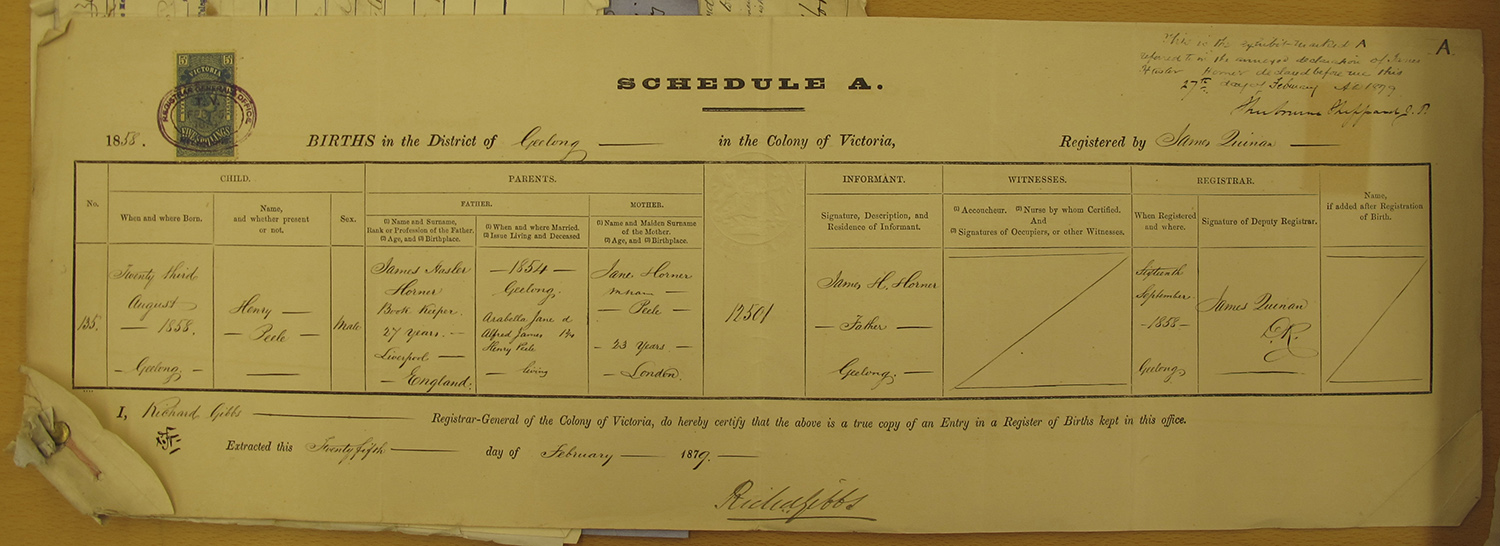 This is the exhibit marked A
A
referred to in the annexed declaration of James
Horner declared before me this
27th day of February A.D. 1879
Sheppard J.P.
5/ 5/
VICTORIA
REGISTRAR GENERAL'S OFFICE
FIVE SHILLINGS
SCHEDULE A.
1858. BIRTHS in the District of Geelong — in the Colony of Victoria, Registered by James Quinan —
CHILD. PARENTS. INFORMANT. WITNESSES. REGISTRAR.
No. When and where Born. Name, and whether present or not. Sex.
FATHER. MOTHER.
(1) Name and Surname,
Rank or Profession of the Father.
(2) Age, and (3) Birthplace.
(1) When and where Married.
(2) Issue Living and Deceased
(1) Name and Maiden Surname
of the Mother.
(2) Age, and (3) Birthplace.
Signature, Description, and
Residence of Informant.
(1) Accoucheur. (2) Nurse by whom Certified.
And
(3) Signatures of Occupiers, or other Witnesses.
When Registered
and where.
Signature of Deputy Registrar.
Name,
if added after Registration
of Birth.
135.
Twenty third
August
— 1858.
— Geelong. —
Henry —
— Peele —
Male
James Hasler
Horner
Book Keeper.
27 years. —
Liverpool —
— England.
— 1854 —
Geelong.
Arabella Jane d
Alfred James
Henry Peele
— living
Jane Horner
— Peele —
— 23 Years. —
— London.
12501
James H. Horner
— Father —
Geelong. —
Sixteenth
September
— 1858 —
Geelong
James Quinan
D.R.
I, Richard Gibbs — Registrar-General of the Colony of Victoria, do hereby certify that the above is a true copy of an Entry in a Register of Births kept in this office.
Extracted this Twenty fifth — day of February — 1879. —
Richd Gibbs